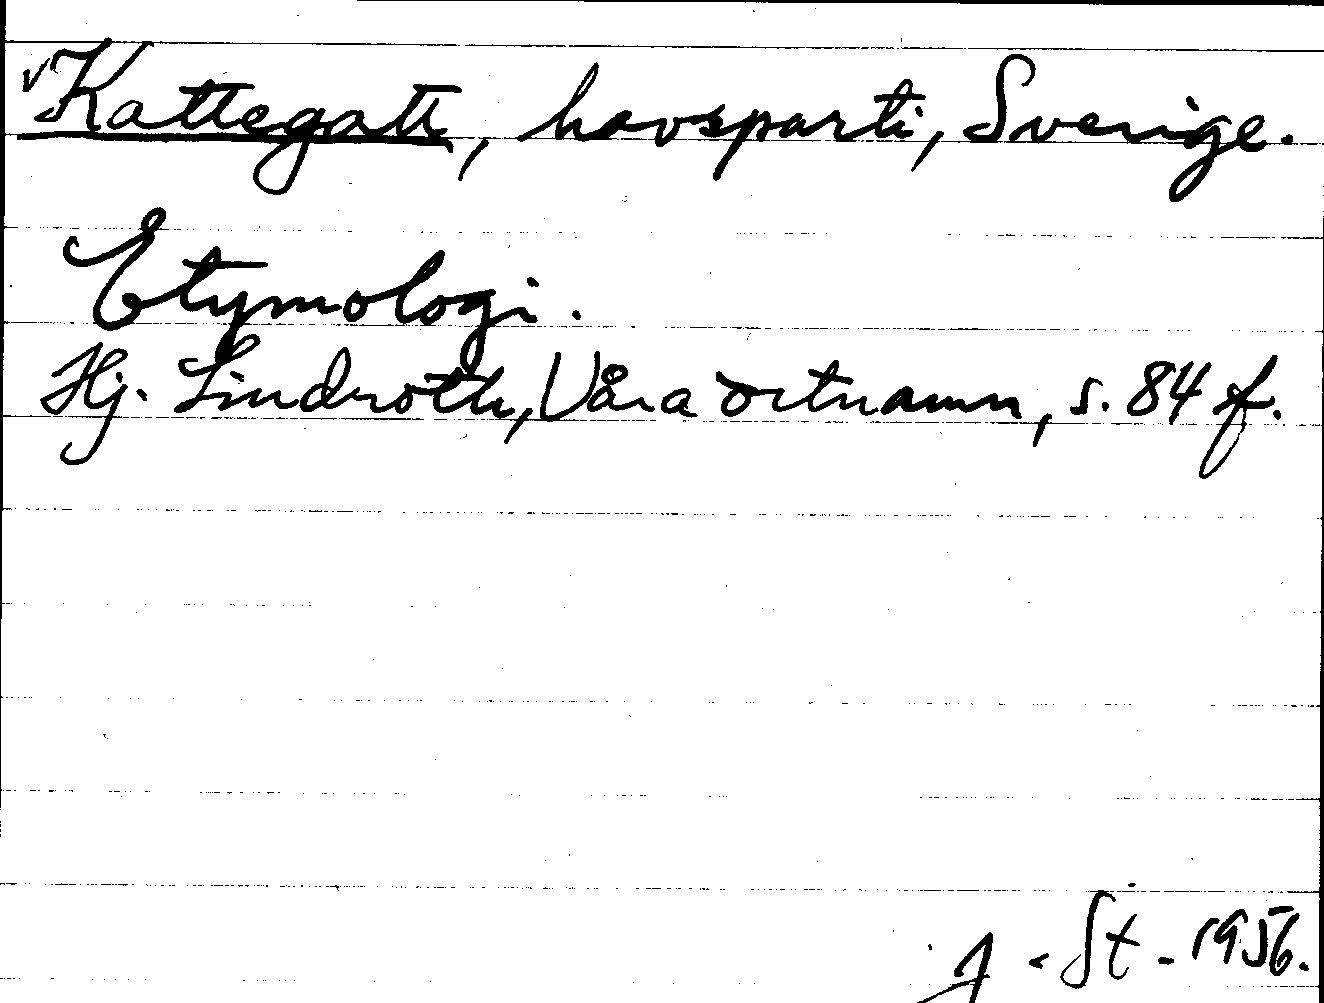 √Kattegatt, havsparti, Sverige.
Etymologi.
Hj. Lindroth, Våra ortnamn, s. 84 f.
A. St. 1956.